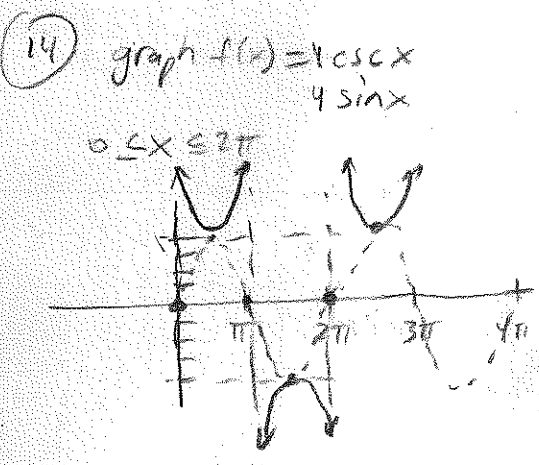 14 graph f(x) = 4 csc x
4 sin x
0 ≤ x ≤ 2π
π 2π 3π 4π